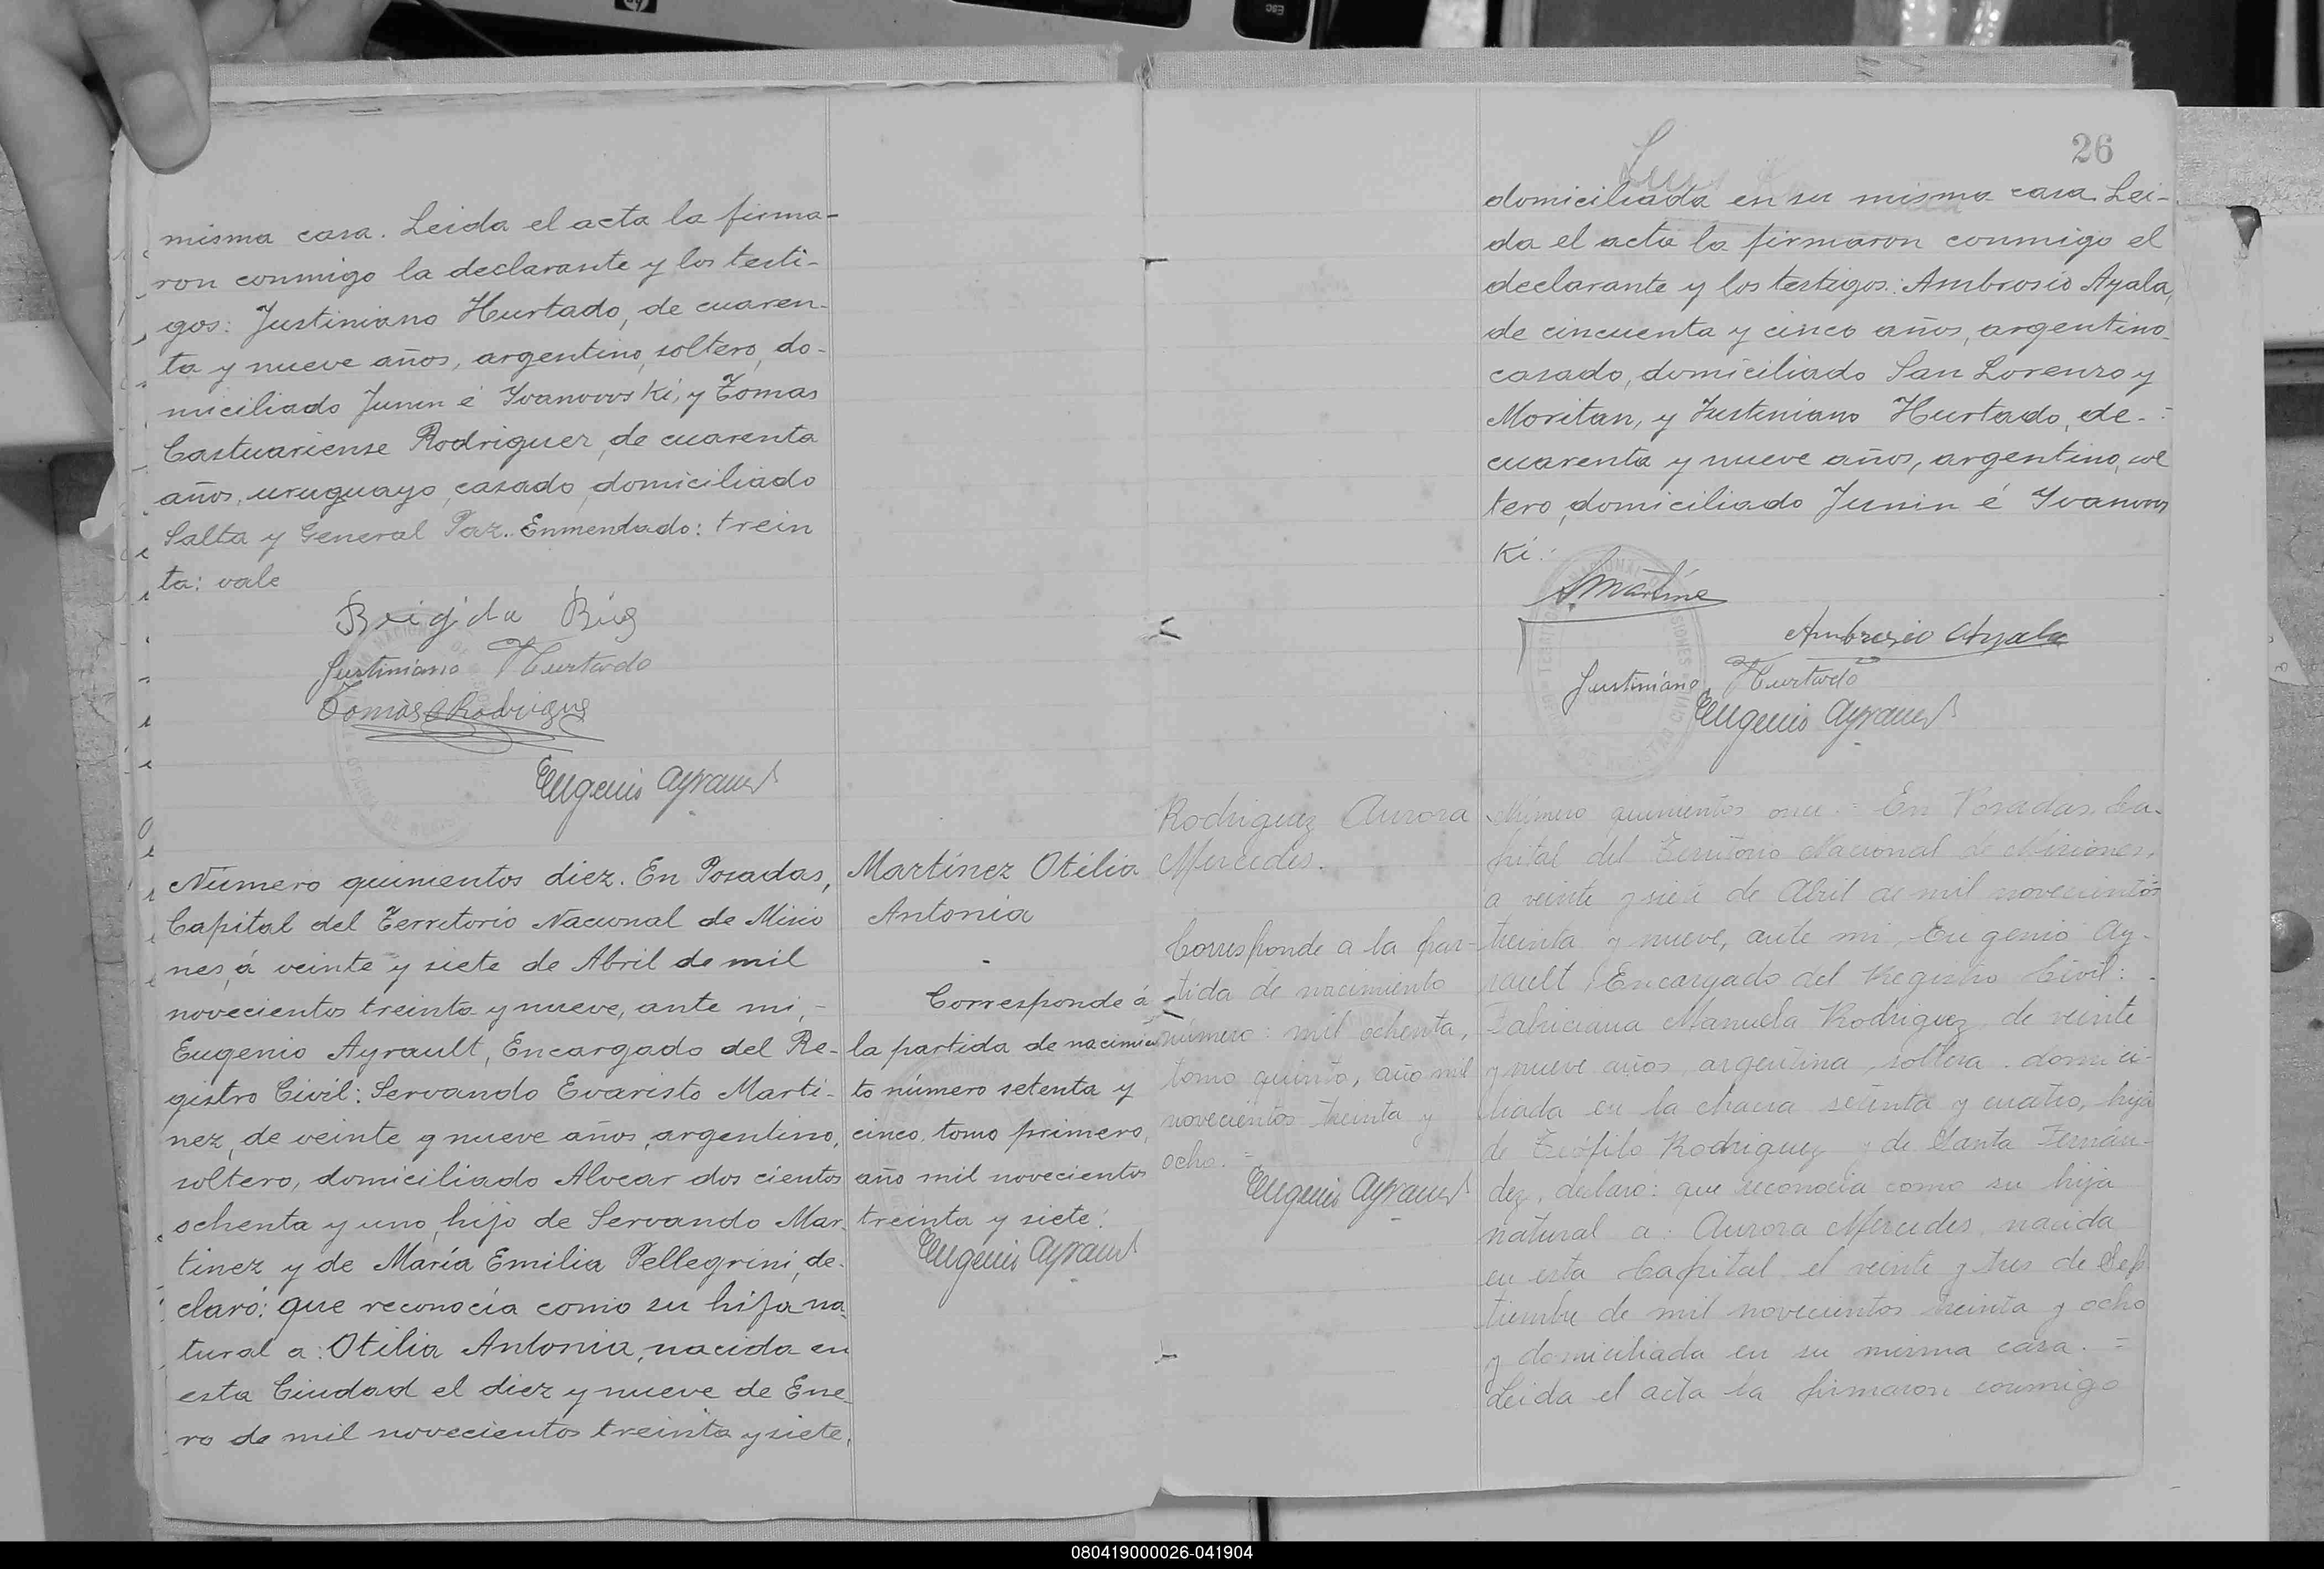 misma casa. Leida el acta la firma-
ron conmigo la declarante y los testi-
gos: Justiniano Hurtado, de cuaren-
ta y nueve años, argentino, soltero, do-
miciliado Junin é Yvanovvski, y Tomas
Castuariense Rodriguez, de cuarenta
años, uruguayo, casado, domiciliado
Salta y General Paz. Enmendado: trein
ta: vale
Brigida
Justiniano Hurtado
Tomas C Rodriguez
Eugenio Ayrault
Número quinientos diez. En Posadas,
Capital del Territorio Nacional de Misio
nes, á veinte y siete de Abril de mil
novecientos treinta y nueve, ante mi, -
Eugenio Ayrault, Encargado del Re-
gistro Civil: Servando Evaristo Marti-
nez, de veinte y nueve años, argentino,
soltero, domiciliado Alvear dos cientos
ochenta y uno, hijo de Servando Mar-
tinez y de María Emilia Pellegrini, de-
claró: que reconocía como su hija na-
tural a: Otilia Antonia, nacida en
esta Ciudad el diez y nueve de Ene-
ro de mil novecientos treinta y siete,
Martínez Otilia
Antonia
-
Corresponde á
la partida de nacimien
to número setenta y
cinco, tomo primero,
año mil novecientos
treinta y siete.
Eugenio Ayrault
26
domiciliada en su misma casa. Lei-
da el acta la firmaron conmigo el
declarante y los testigos: Ambrosio Ayala,
de cincuenta y cinco años, argentino
casado, domiciliado San Lorenzo y
Moritan, y Justiniano Hurtado, de-
cuarenta y nueve años, argentino, sol
tero, domiciliado Junin é Yvanovvs
ki.
S. Martinez
Ambrosio Ayala
Justiniano Hurtado
Eugenio Ayrault
Rodriguez Aurora
Mercedes.
Corresponde a la par-
tida de nacimiento
número: mil ochenta,
tomo quinto, año mil
novecientos treinta y
ocho. =
Eugenio Ayrault
Número quinientos once = En Posadas, Ca-
pital del Territorio Nacional de Misiones,
a veinte y siete de Abril de mil novecientos
treinta y nueve, ante mi, Eugenio Ay-
rault, Encargado del Registro Civil:
Fabriciana Manuela Rodriguez, de veinte
y nueve años, argentina, soltera, domici-
liada en la chacra setenta y cuatro, hija
de Teófilo Rodriguez y de Santa Fernán-
dez, declaro: que reconocía como su hija
natural a: Aurora Mercedes, nacida
en esta Capital el veinte y tres de Sep
tiembre de mil novecientos treinta y ocho
y domiciliada en su misma casa. =
Leida el acta la firmaron conmigo
080419000026-041904